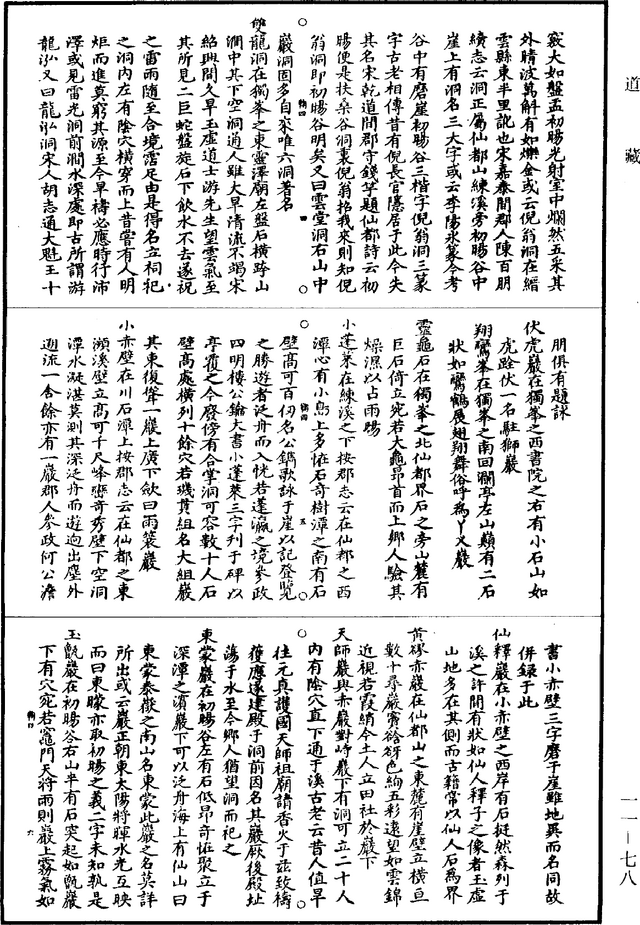 竅大如盤盂初暘光射室中爛然五采其
外晴波萬斛有如爍金或云倪翁洞在縉
雲縣東半里訛也宋嘉泰間郡人陳百朋
續志云洞正屬仙都山練溪旁初暘谷中
崖上有洞名三大字或云李陽冰篆今考
谷中有磨崖初暘谷三楷字倪翁洞三篆
字古老相傳昔有倪長官隱居于此今失
其名宋乾道間郡守錢竽題仙都詩云初
暘便是扶桑谷洞裏倪翁招我來則知倪
翁洞即初暘谷明矣又曰雲堂洞石山中
巖洞固多自來唯六洞著名
雙龍洞在獨峯之東靈澤廟左盤石橫跨山
澗中其下空洞過人雖大旱清流不竭宋
紹興間久旱玉虛道士游先生望雲氣至
其所見二巨蛇盤旋石下飲水不去遂祝
之雷雨隨至合境霑足由是得名立祠祀
之洞內左有陰穴橫穿而上昔嘗有人明
炬而進莫窮其源至今旱禱必應時行沛
澤或見雷光洞前澗水深處即古所謂游
龍泓又曰龍泓洞宋人胡志通大魁王十
朋俱有題詠
伏虎巖在獨峯之西書院之右有小石山如
虎跧伏一名駐獅巖
翔鸞峯在獨峯之南回瀾亭左山巔有二石
狀如鸞鶴展翅翔舞俗呼為丫叉巖
靈龜石在獨峯之北仙都界石之旁山麓有
巨石倚立宛若大龜昂首而上鄉人驗其
燥濕以占雨暘
小蓬萊在練溪之下按郡志云在仙都之西
潭心有小島上多怪石奇樹潭之南有石
壁高可百仞名公鐫歌詠于崖以記登覽
之勝遊者泛舟而入恍若蓬瀛之境參政
四明樓公鑰大書小蓬萊三字列于碑以
亭覆之今廢傍有合掌洞可容數十人石
壁高處橫列十餘穴若璣貫組名大組巖
其東復聳一巖上廣下歛曰雨蓑巖
小赤壁在川石潭上按郡志云在仙都之東
瀕溪壁立高可千尺峰巒奇秀壁下空洞
潭水凝湛莫測其深泛舟而遊迥出塵外
迴流一舍餘亦有一巖郡人參政何公澹
書小赤壁三字磨于崖雖地異而名同故
併録于此
仙釋巖在小赤壁之西岸有石挺然森列于
溪之許間有狀如仙人釋子之像者玉虛
山地多在其側而古籍常以仙人石為界
黃磜赤巖在仙都山之東麓有崖壁立橫亘
數十尋巖竇谽谺色絢五彩遠望如雲錦
近視若霞綃今土人立田社於巖下
天師巖與赤巖對峙巖下有洞可立二十人
內有陰穴直下通于溪古老云昔人值旱
往元真護國天師祖廟請香火于茲致禱
獲應遂建殿于洞前因名其巖厥後殿址
蕩于水至今鄉人猶望洞而祀之
東蒙巖在初暘谷左有石低昂奇怪聚立于
深潭之濵巖下可以泛舟海上有仙山曰
東蒙泰嶽之南山名東蒙此巖之名莫詳
所出或云巖正朝東太陽將暉水光互映
而曰東矇亦取初暘之義二字未知孰是
玉甑巖在初暘谷右山半有石突起如甑巖
下有穴宛若竈門天將雨則巖上霧氣如
道藏
一一一七八